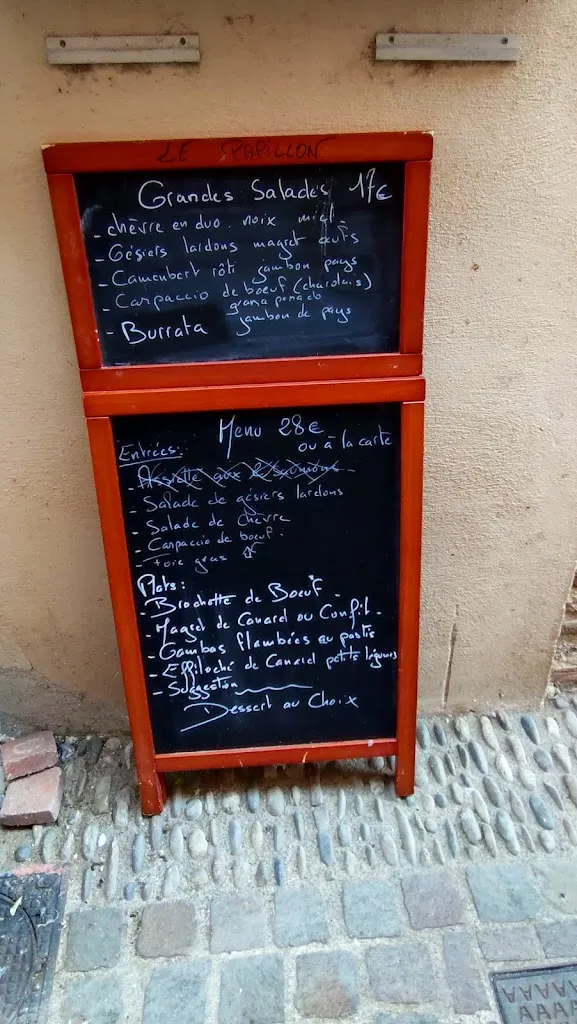 LE PAPILLON
Grandes Salades 17€
- chèvre en duo. noix miel.
- Gésiers lardons magret œufs
- Camembert rôti jambon pays
- Carpaccio de boeuf (charolais)
grana padado
- Burrata jambon de pays
Menu 28€
ou à la carte
Entrées:
- Assiette aux 2 saumons
- Salade de gésiers lardons
- Salade de chèvre
- Carpaccio de boeuf.
- Foie gras
Plats:
- Brochette de Boeuf.
- Magret de Canard ou Confit.
- Gambas flambées au pastis
- Effiloché de Canard petits légumes
- Suggestion
Dessert au Choix